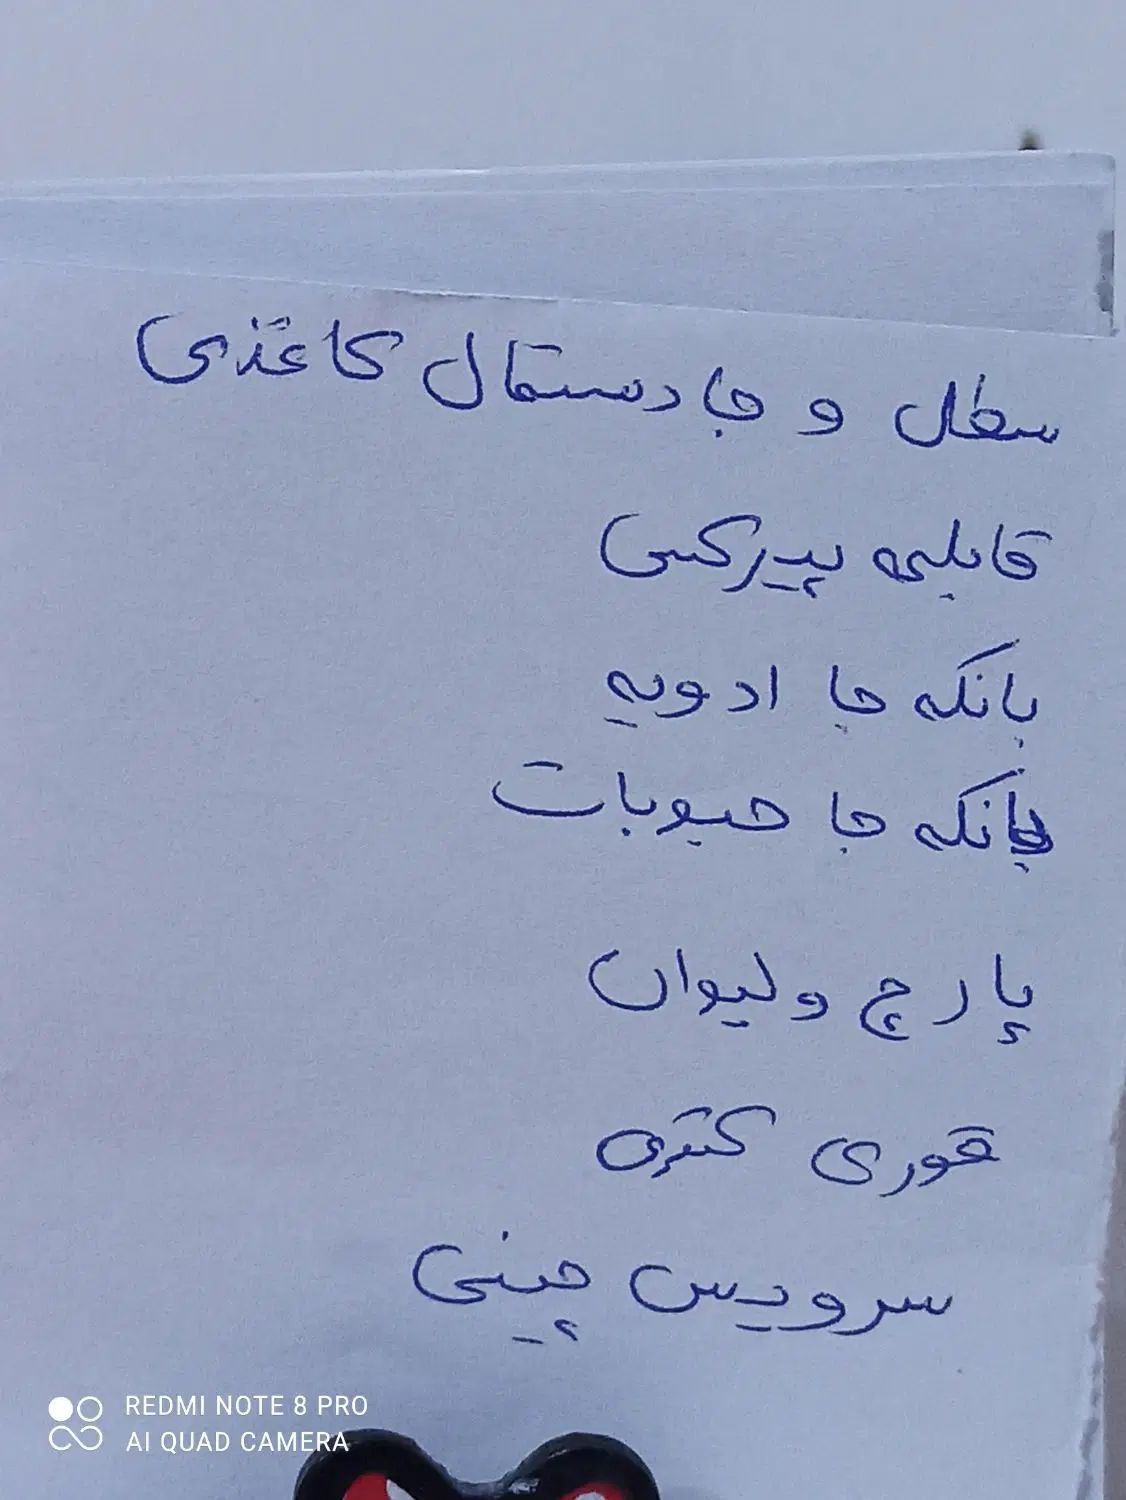 سطل و جا دستمال کاغذی
قابلمه پیرکسی
بانکه جا ادویه
بانکه جا حبوبات
پارچ و لیوان
قوری کتری
سرویس چینی
REDMI NOTE 8 PRO
AI QUAD CAMERA